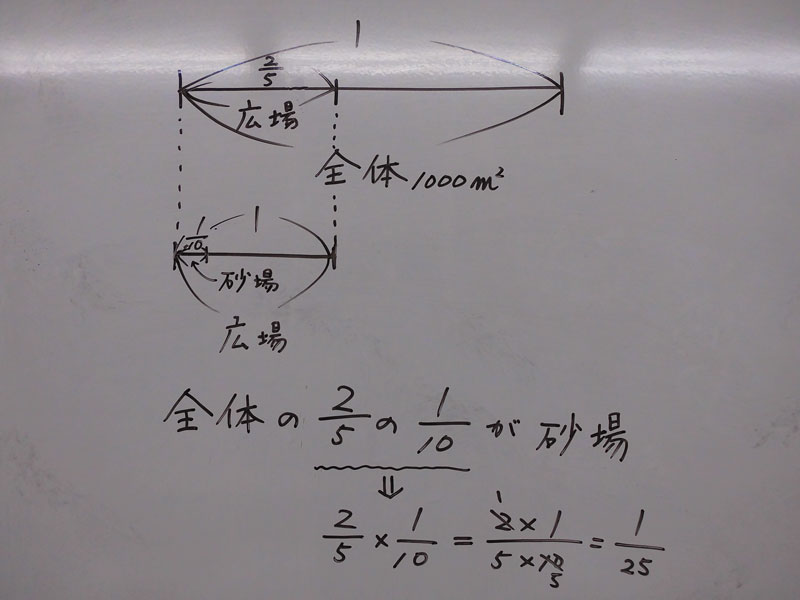 1
2/5
広場
全体 1000m²
1/10 1
砂場
広場
全体の 2/5 の 1/10 が 砂場
⇓
2/5 × 1/10 = 1 2×1/5×10 5 = 1/25